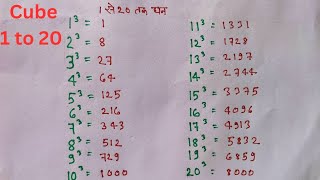 Cube
1 to 20
1 से 20 तक घन
1³ = 1
2³ = 8
3³ = 27
4³ = 64
5³ = 125
6³ = 216
7³ = 343
8³ = 512
9³ = 729
10³ = 1000
11³ = 1331
12³ = 1728
13³ = 2197
14³ = 2744
15³ = 3375
16³ = 4096
17³ = 4913
18³ = 5832
19³ = 6859
20³ = 8000